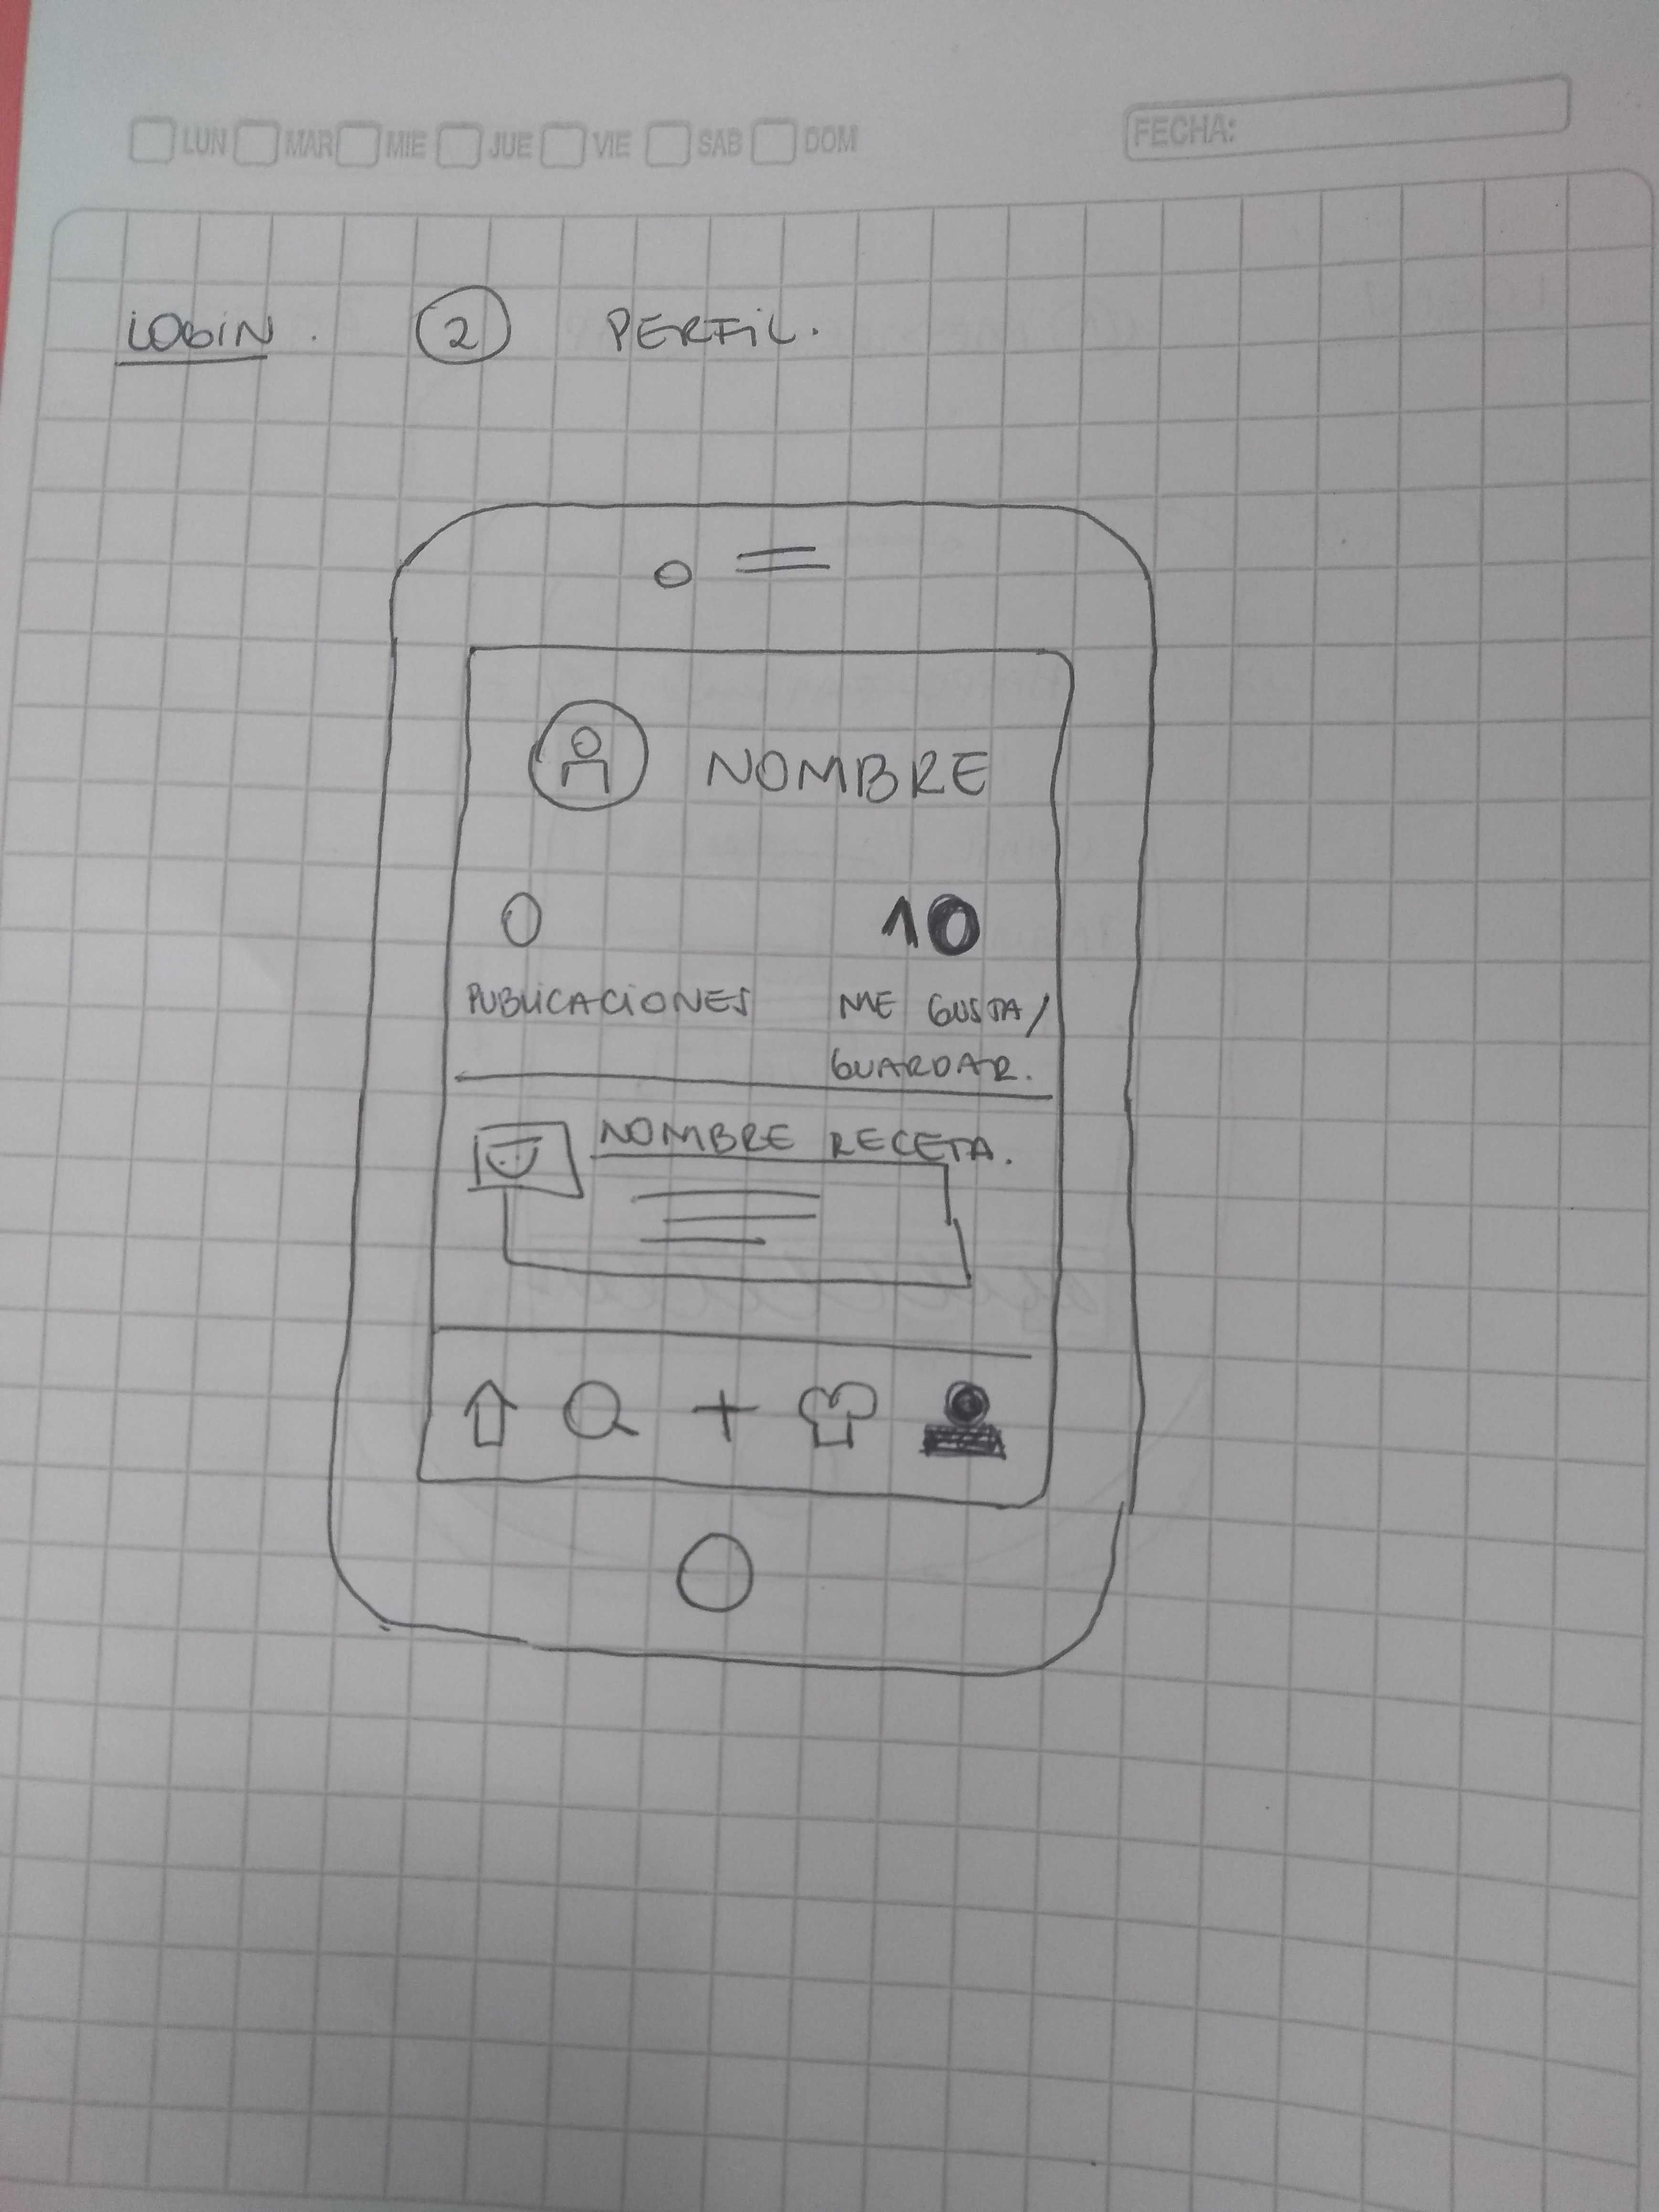 LUN MAR MIE JUE VIE SAB DOM FECHA:
LOGIN. 2 PERFIL.
NOMBRE
0 10
PUBLICACIONES ME GUSTA/
GUARDAR.
NOMBRE RECETA.